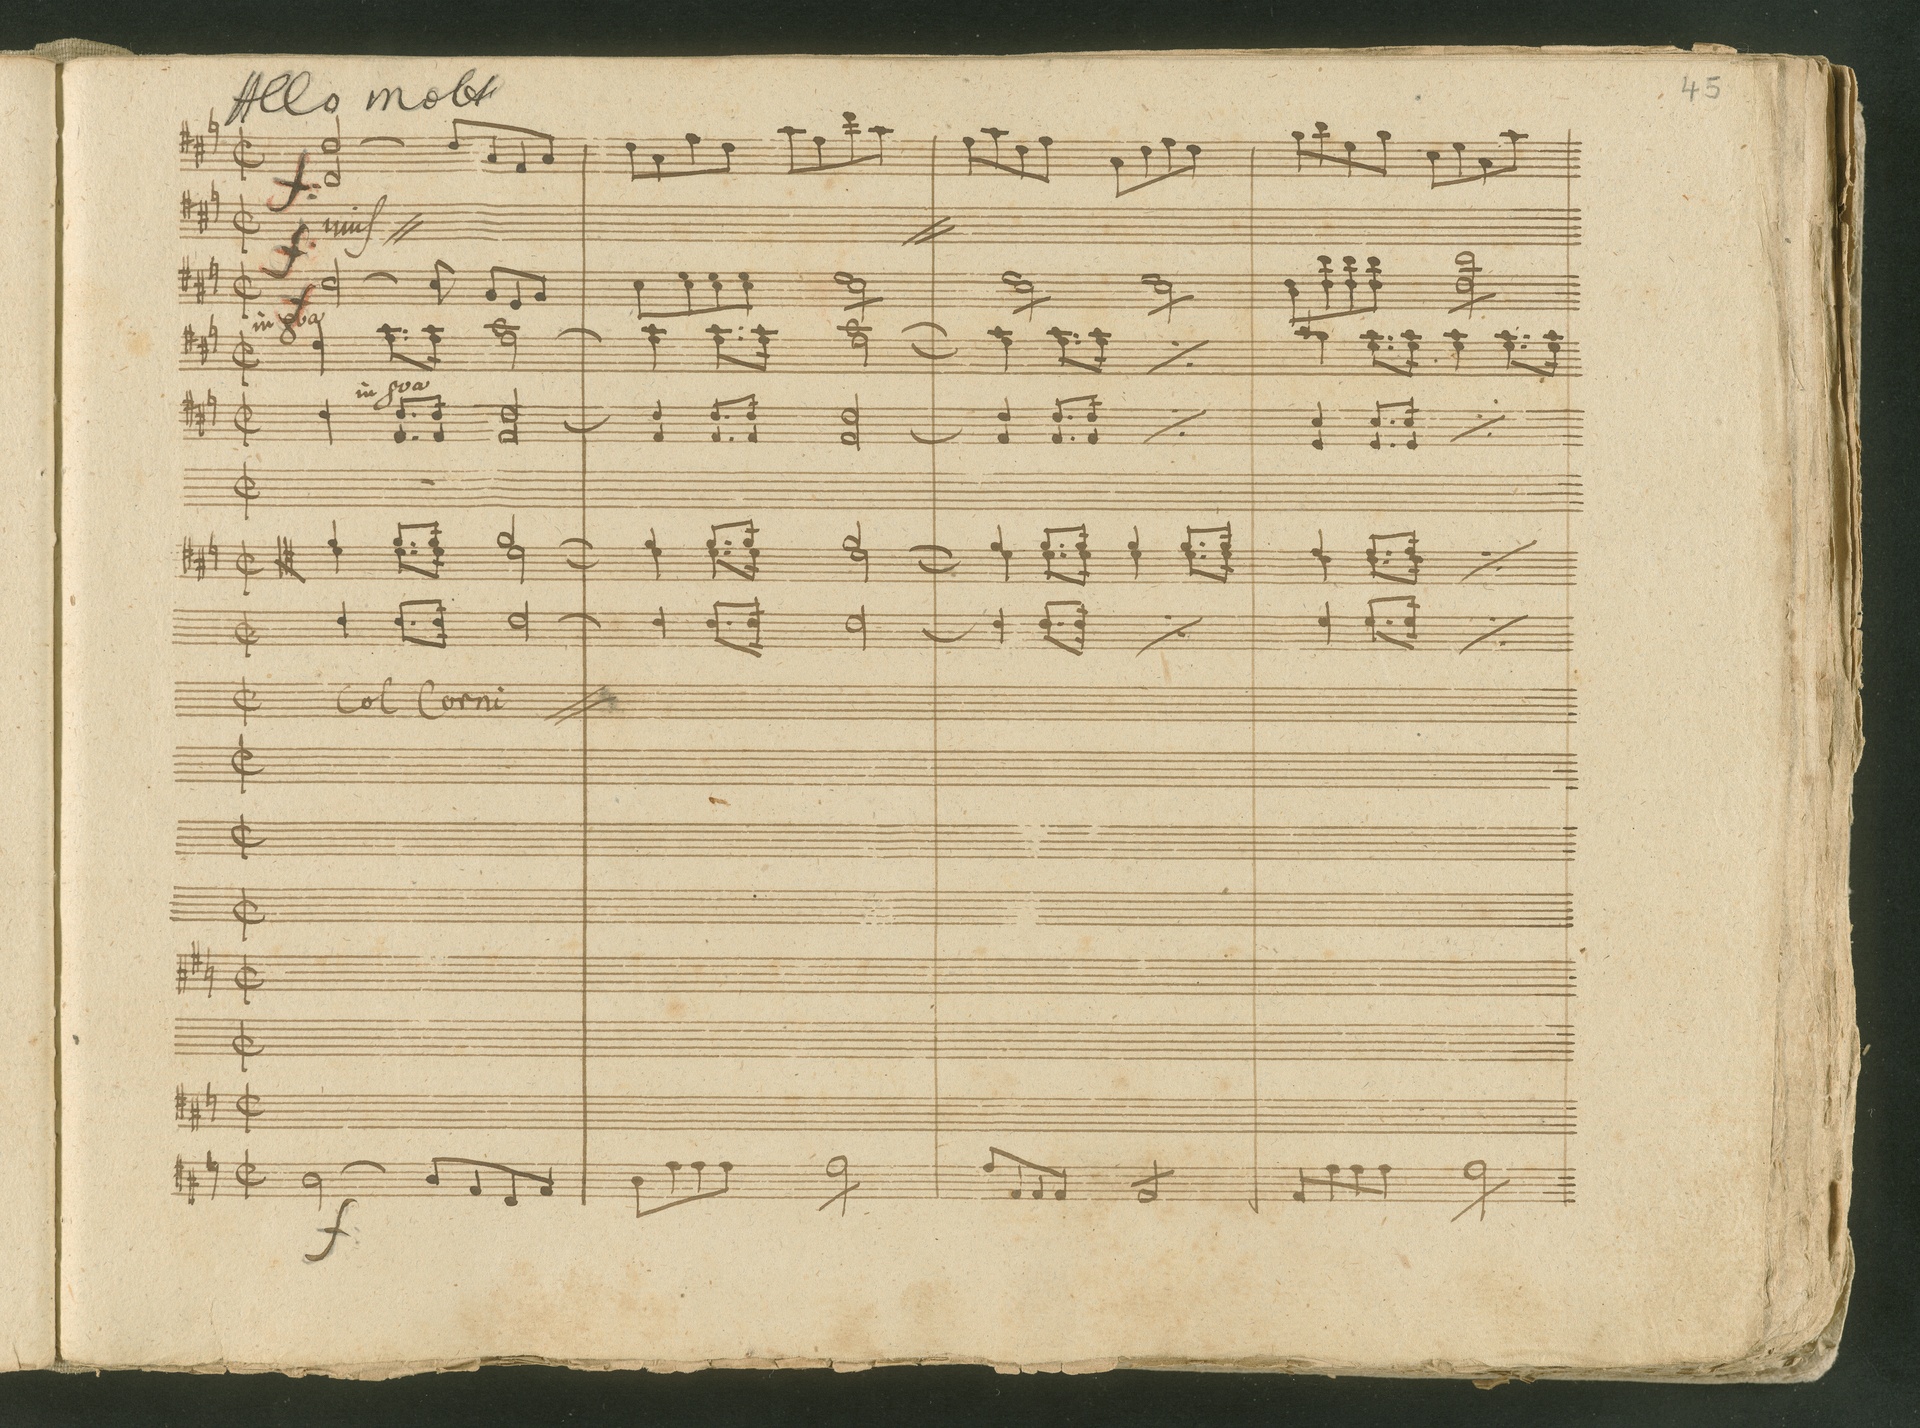 Allo molto
45
f:
unis //
f
f
in 8va
in 8va
Col Corni //
f: